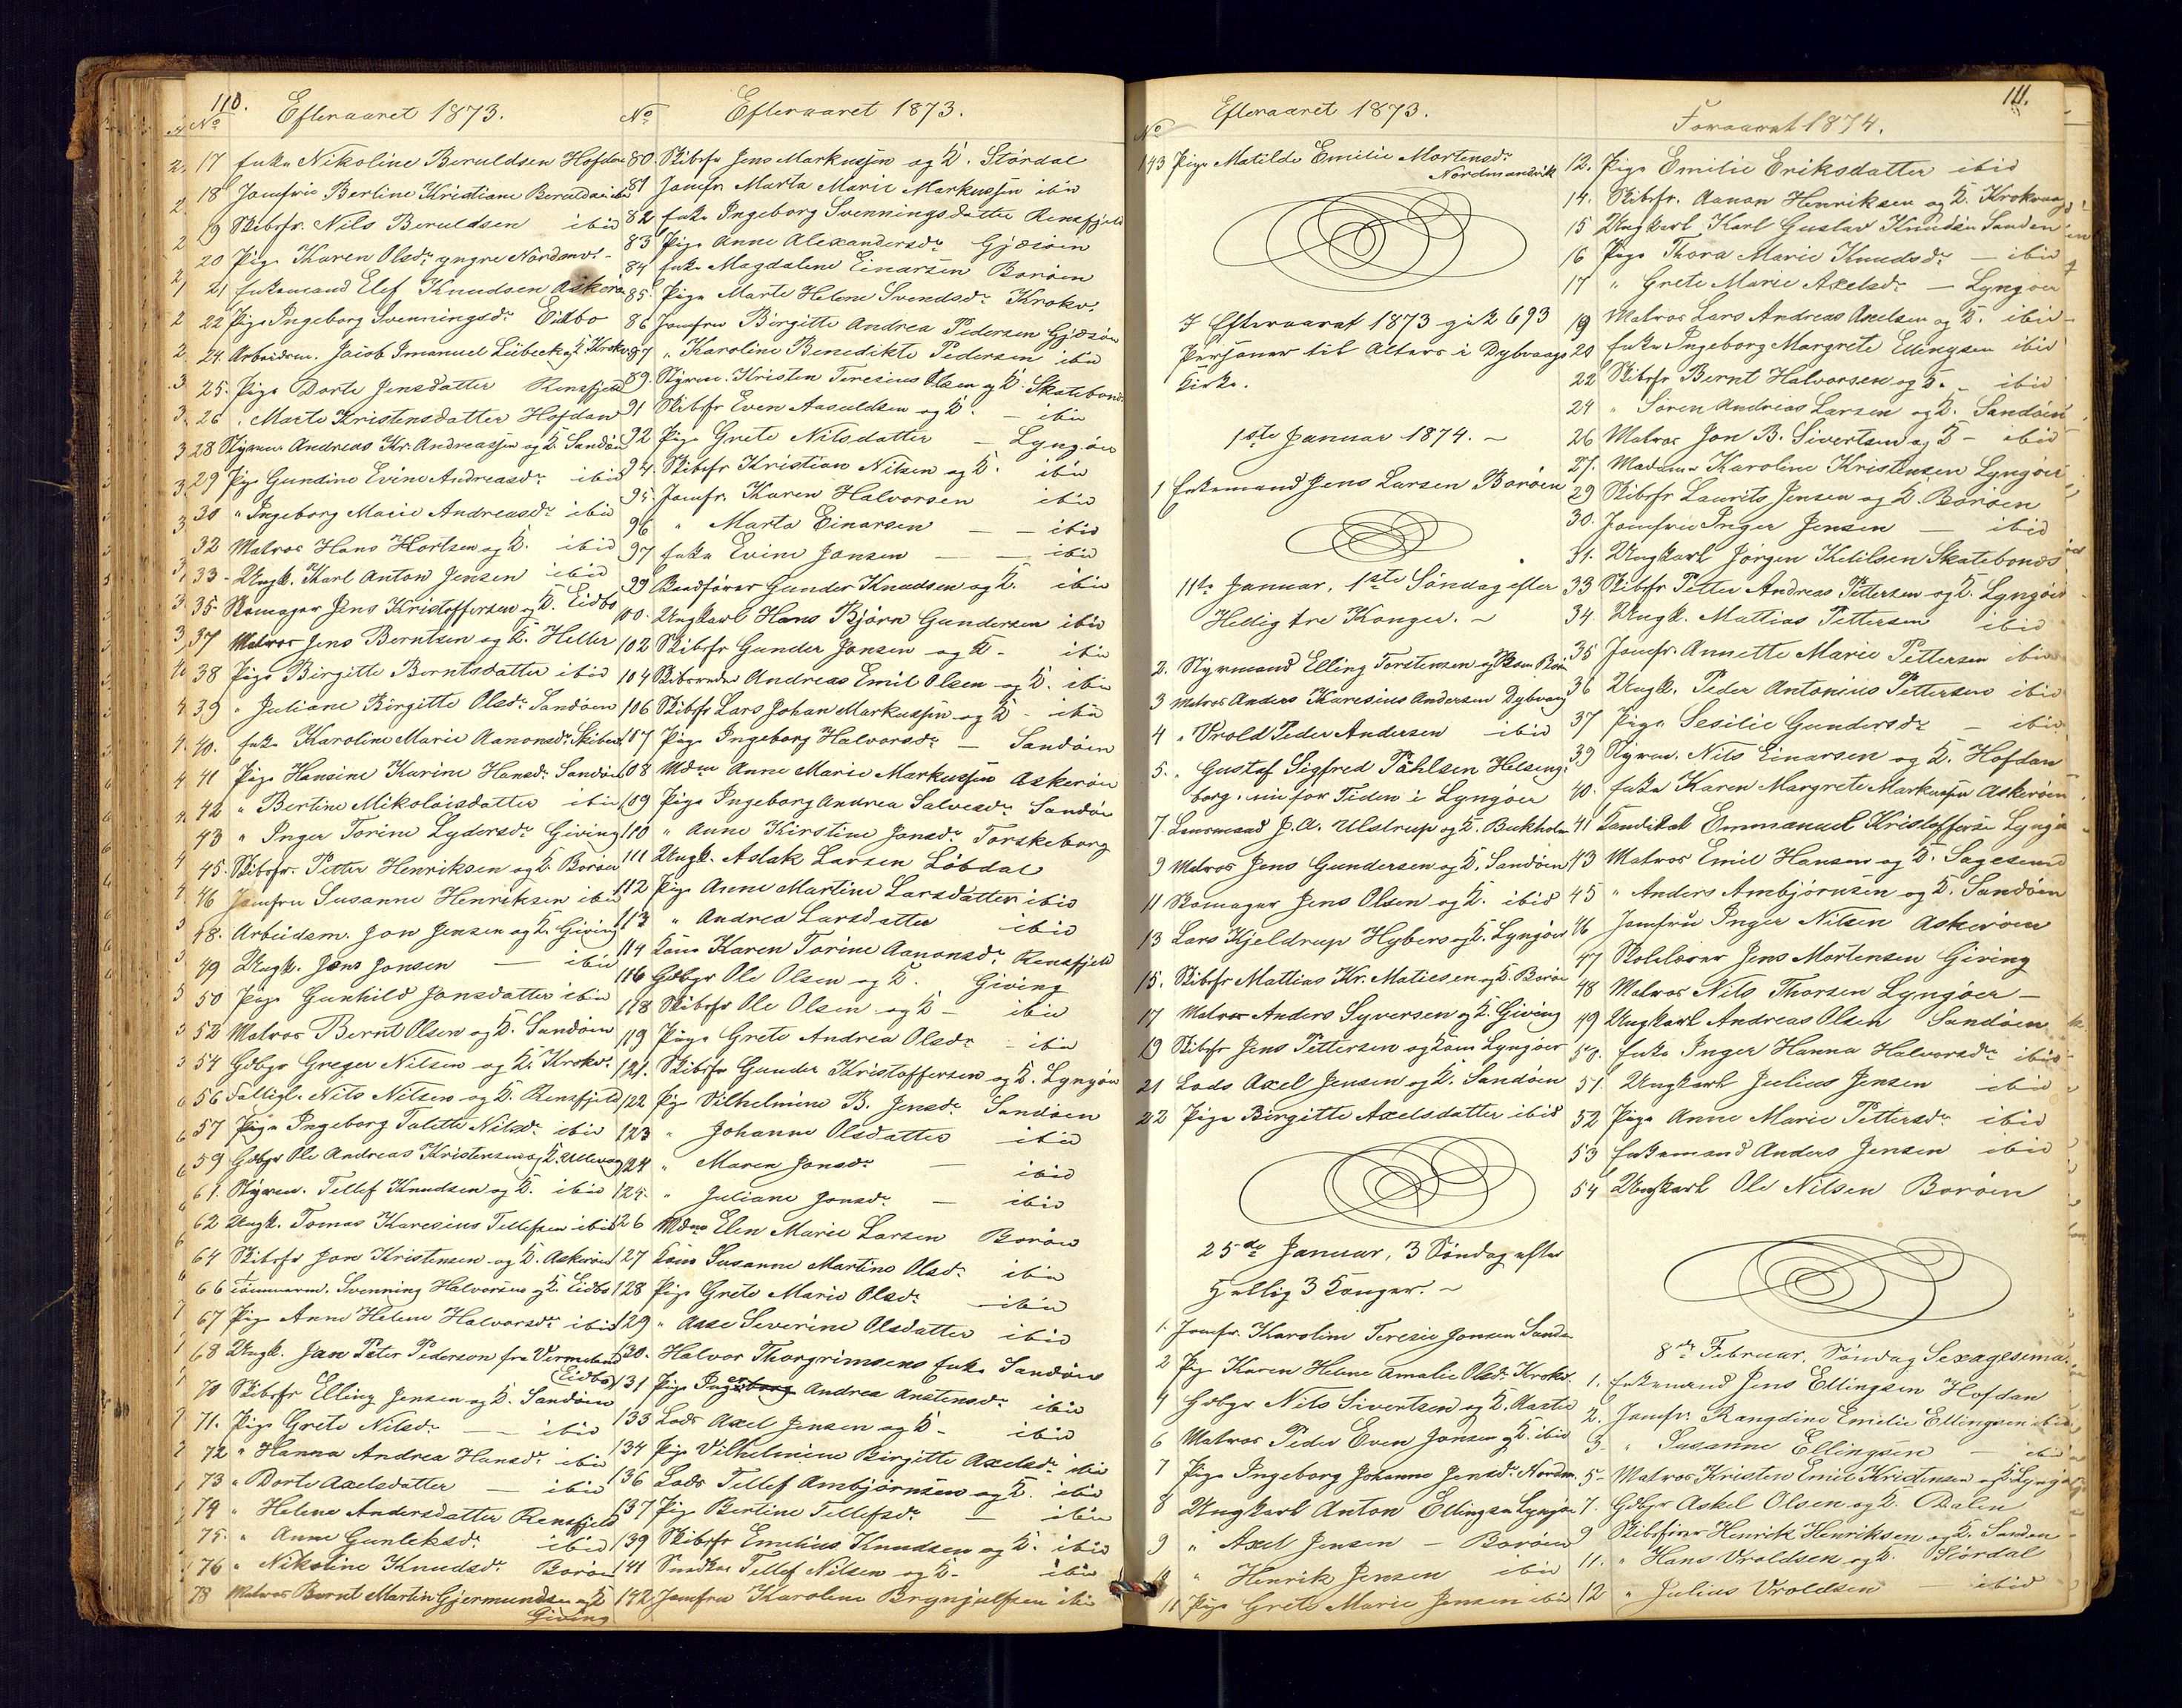 110.
Efteraaret 1873.
No
17 Enke Nikoline Beruldsen Hofdan
18 Jomfru Berline Kristiane Beruldsen ibid
19 Skibsfr. Nils Beruldsen ibid
20 Pige Karen Olsdr yngre Nordanv.
21 Enkemand Elef Knudsen Askerø
22 Pige Ingeborg Svenningsdr Eidbo
24. Arbeidsm. Jacob Imanuel Lübeck og K. Krokv.
25. Pige Dorte Jensdatter Rensfjeld
26 " Marte Kristensdatter Hofdan
28 Styrm. Andreas Kr. Andreassen og K. Sandøen
29 Pige Gundine Evine Andreasdr ibid
30 " Ingeborg Marie Andreasdr ibid
32 Matros Hans Hortsen og K. ibid
33 - Ungk. Karl Anton Jensen ibid
35 Skomager Jens Kristoffersen og K. Eidbo
37 Matros Jens Berntsen og K. Heller
38 Pige Birgitte Berntsdatter ibid
39 " Juliane Birgitte Olsdr Sandøen
40. Enke Karoline Marie Aanonsdr Skiben
41 Pige Hansine Karine Hansdr Sandøen
42 " Bertine Mikolaisdatter ibid
43 " Inger Torine Lydersdr Giving
45. Skibsfr. Petter Henriksen og K. Borøen
46 Jomfru Susanne Henriksen ibid
48. Arbeidsm. Jon Jensen og K. Giving
49 Ungk. Jens Jonsen — ibid
50 Pige Gunhild Jonsdatter ibid
52 Matros Bernt Olsen og K. Sandøen
54 Gdbgr Greger Nilsen og K. Krokv.
56 Fattigl. Nils Nilsen og K. Rensfjeld
57 Pige Ingeborg Talette Nilsdr ibid
59 Gdbgr Ole Andreas Kristensen og K. Ullevaag
61. Styrm. Tellef Knudsen og K. ibid
62 Ungk. Tomas Karesius Tellefsen ibid
64 Skibsfr Jon Kristensen og K. Askerøen
66 Tømmerm. Svenning Halvorsen og K. Eidbo
67 Pige Anne Helene Halvorsdr ibid
68 Ungk. Jan Peter Pederson fra Vermeland
(Eidbo)
70 Skibsfr Elling Jensen og K. Sandøen
71. Pige Grete Nilsdr — ibid
72 " Hanna Andrea Hansdr ibid
73 " Dorte Axelsdatter — ibid
74 " Helene Andersdatter Rensfjeld
75. " Anne Gunleksdr ibid
76 " Nikoline Knudsdr Borøen
78 Matros Bernt Martin Gjermundsen og K
Giving
No
Efteraaret 1873.
80. Skibsfr Jens Markussen og K. Stördal
81 Jomfr. Marta Marie Markussen ibid
82 Enke Ingeborg Svenningsdatter Rensfjeld
83 Pige Anne Alexandersdr Gjæsöen
84 Enke Magdalene Einarsen Borøen
85. Pige Marte Helene Svendsdr Krokv.
86 Jomfru Birgitte Andrea Pedersen Gjæsöen
87 " Karoline Benedikte Pedersen ibid
89. Styrm. Kristen Teresius Olsen og K. Skatebond.
91 Skibsfr Even Aasuldsen og K. — ibid
92 Pige Grete Nilsdatter — Lyngøer
94. Skibsfr Kristian Nilsen og K. ibid
95. Jomfr. Karen Halvorsen ibid
96 " Marta Einarsen — — ibid
97 Enke Evine Jonsen — — ibid
99 Baadfører Gunder Knudsen og K. ibid
100. Ungkarl Hans Bjørn Gundersen ibid
102 Skibsfr Gunder Jonsen og K - ibid
104 Skibsreder Andreas Emil Olsen og K. ibid
106 Skibsfr Lars Johan Markussen og K - ibid
107 Pige Ingeborg Halvorsdr — Sandöen
108 Mdme Anne Marie Markussen Askerøen
109 Pige Ingeborg Andrea Salvesdr Sandöe
110 " Anne Kirstine Jonsdr Torskeborg
111 Ungk. Aslak Larsen Löbdal
112 Pige Anne Martine Larsdatter ibid
113 " Andrea Larsdatter ibid
114 Kone Karen Torine Aanonsdr Rensfjeld
116 Gdbgr Ole Olsen og K. Giving
118 Skibsfr Ole Olsen og K - ibid
119 Pige Grete Andrea Olsdr - ibid
121. Skibsfr Gunder Kristoffersen og K. Lyngøer
122 Pige Vilhelmine B. Jensdr Sandöen
123 " Johanne Olsdatter ibid
124 " Maren Jonsdr — ibid
125. " Juliane Jonsdr — ibid
126 Mdme Elen Marie Larsen Borøen
127 Kone Susanne Martine Olsdr ibid
128 Pige Grete Marie Olsdr — ibid
129 " Aase Severine Olsdatter ibid
130. Halvor Thorgrimsens Enke Sandöen
131 Pige Inger Andrea Anstensdr ibid
133 Lods Axel Jensen og K - ibid
134 Pige Vilhelmine Birgitte Axelsdr ibid
136 Lods Tellef Ambjörnsen og K. ibid
137 Pige Bertine Tellefsdr — ibid
139 Skibsfr Emilius Knudsen og K. ibid
141 Snedker Tellef Nilsen og K - ibid
142 Jomfru Karoline Brynjulfsen ibid
Efteraaret 1873.
No
143 Pige Matilde Emilie Mortensdr
Nordmandvik
I Efteraaret 1873 gik 693
Personer til Alters i Dybvaags
Kirke.
1ste Januar 1874. ~
1 Enkemand Jens Larsen Borøen
11te Januar, 1ste Söndag efter
Hellig tre Konger. ~
2. Styrmand Elling Torstensen og Kone Borø
3 Matros Anders Karesius Andersen Dybvaag
4 " Vrold Peder Andersen ibid
5. " Gustaf Sigfred Påhlsen Helsing-
borg, nu for Tiden i Lyngøer
7. Lensmand J. A. Ulstrup og K. Bukholm
9 Matros Jens Gundersen og K. Sandöen
11 Skomager Jens Olsen og K. ibid
13 Lars Kjeldrup Hybers og K. Lyngøer
15. Skibsfr Mattias Kr. Matiesen og K. Borøe
17 Matros Anders Syversen og K. Giving
19 Skibsfr Jens Pettersen og Kone Lyngøer
21 Lods Axel Jensen og K. Sandöen
22 Pige Birgitte Axelsdatter ibid
25de Januar, 3 Söndag efter
Hellig 3 Konger. ~
1. Jomfr. Karoline Teresie Jonsen Sandø
2 Pig Karen Helene Amalie Olsdr Krokv.
4 Gdbgr Nils Sivertsen og K. Aasta
6 Matros Peder Even Jonsen og K. ibid
7 Pige Ingeborg Johanne Jensdr Nordm.
8 Ungkarl Anton Ellingsen Lyngør
9 " Axel Jensen — Borøen
10 " Henrik Jensen ibid
11 Pige Grete Marie Jensen ibid
111.
Foraaret 1874.
12. Pige Emilie Eriksdatter ibid
14. Skibsfr. Aanon Henriksen og K. Krokvaag
15 Ungkarl Karl Gustav Knudsen Sanden
16 Pige Thora Marie Knudsdr — ibid
17 " Grete Marie Axelsdr — Lyngøer
19 Matros Lars Andreas Axelsen og K. ibid
20 Enke Ingeborg Margrete Ellingsen ibid
22 Skibsfr Bernt Halvorsen og K. - ibid
24 " Sören Andreas Larsen og K. Sandöen
26 Matros Jon B. Sivertsen og K - ibid
27. Madame Karoline Kristensen Lyngøer
29 Skibsfr Laurits Jensen og K. Borøen
30. Jomfru Inger Jensen — ibid
31. Ungkarl Jørgen Ketilsen Skatebonds
33 Skibsfr Petter Andreas Pettersen og K. Lyngøer
34 Ungk. Mattias Pettersen ibid
35 Jomfr. Annette Marie Pettersen ibid
36 Ungk. Peder Antonius Pettersen ibid
37 Pige Sesilie Gundersdr — ibid
39 Styrm. Nils Einarsen og K. Hofdan
40. Enke Karen Margrete Markussen Askerøen
41 Kandidat Emmanuel Kristoffersen Lyngø
43 Matros Emil Hansen og K. Sagesund
45 " Anders Ambjörnsen og K. Sandöen
46 Jomfru Inger Nilsen Askerøen
47 Skolelærer Jens Mortensen Giving
48 Matros Nils Thorsen Lyngøer —
49 Ungkarl Andreas Olsen Sandöen
50. Enke Inger Hanna Halvorsdr ibid
51. Ungkarl Julius Jensen ibid
52 Pige Anne Marie Pettersdr ibid
53 Enkemand Anders Jensen ibid
54 Ungkarl Ole Nilsen Borøen
8de Februar, Söndag Sexagesima.
1. Enkemand Jens Ellingsen Hofdan
2. Jomfr. Rangdine Emilie Ellingsen ibid
3. " Susanne Ellingsen — ibid
5 - Matros Kristen Emil Kristensen og K. Lyngø
7. Gdbgr Askel Olsen og K. Dalen
9 Skibsfører Henrik Henriksen og K. Sanden
11. " Hans Vroldsen og K. Stördal
12 " Julius Vroldsen — ibid